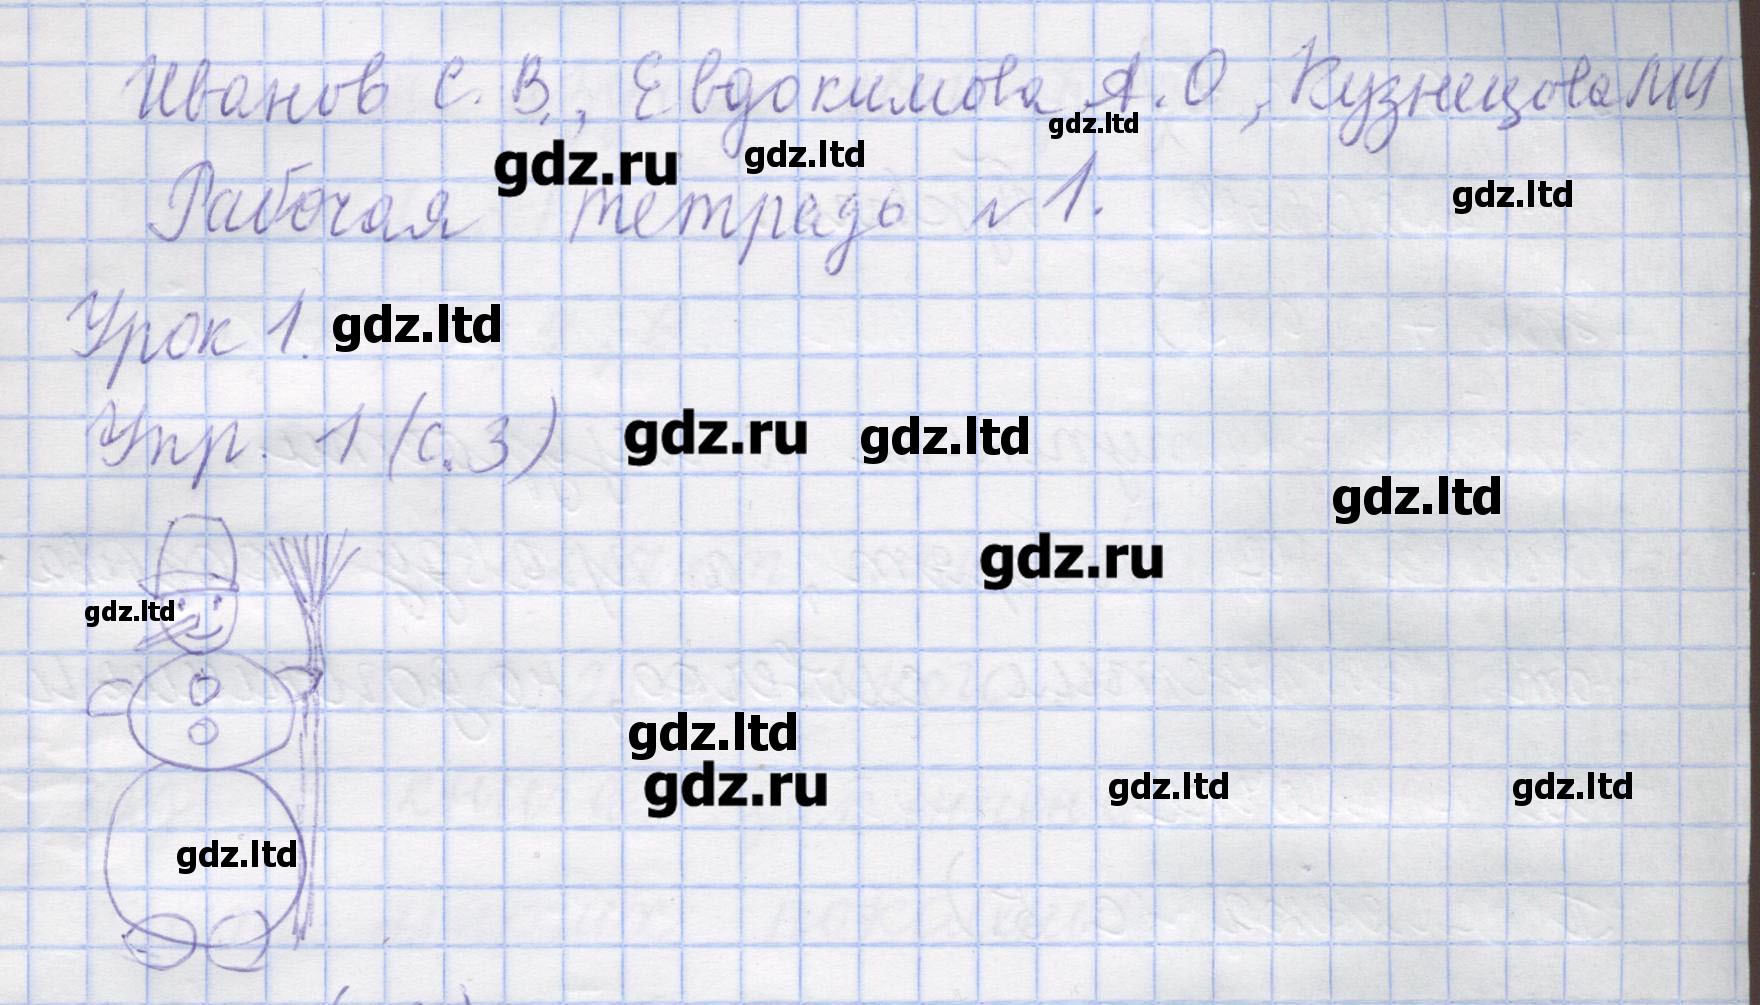 Иванов С. В., Евдокимова А. О, Кузнецова МИ
gdz.ltd
gdz.ru gdz.ltd
Рабочая тетрадь №1.
gdz.ltd
Урок 1. gdz.ltd
Упр. 1 (с. 3) gdz.ru gdz.ltd
gdz.ltd
gdz.ru
gdz.ltd
gdz.ltd
gdz.ru gdz.ltd gdz.ltd
gdz.ltd